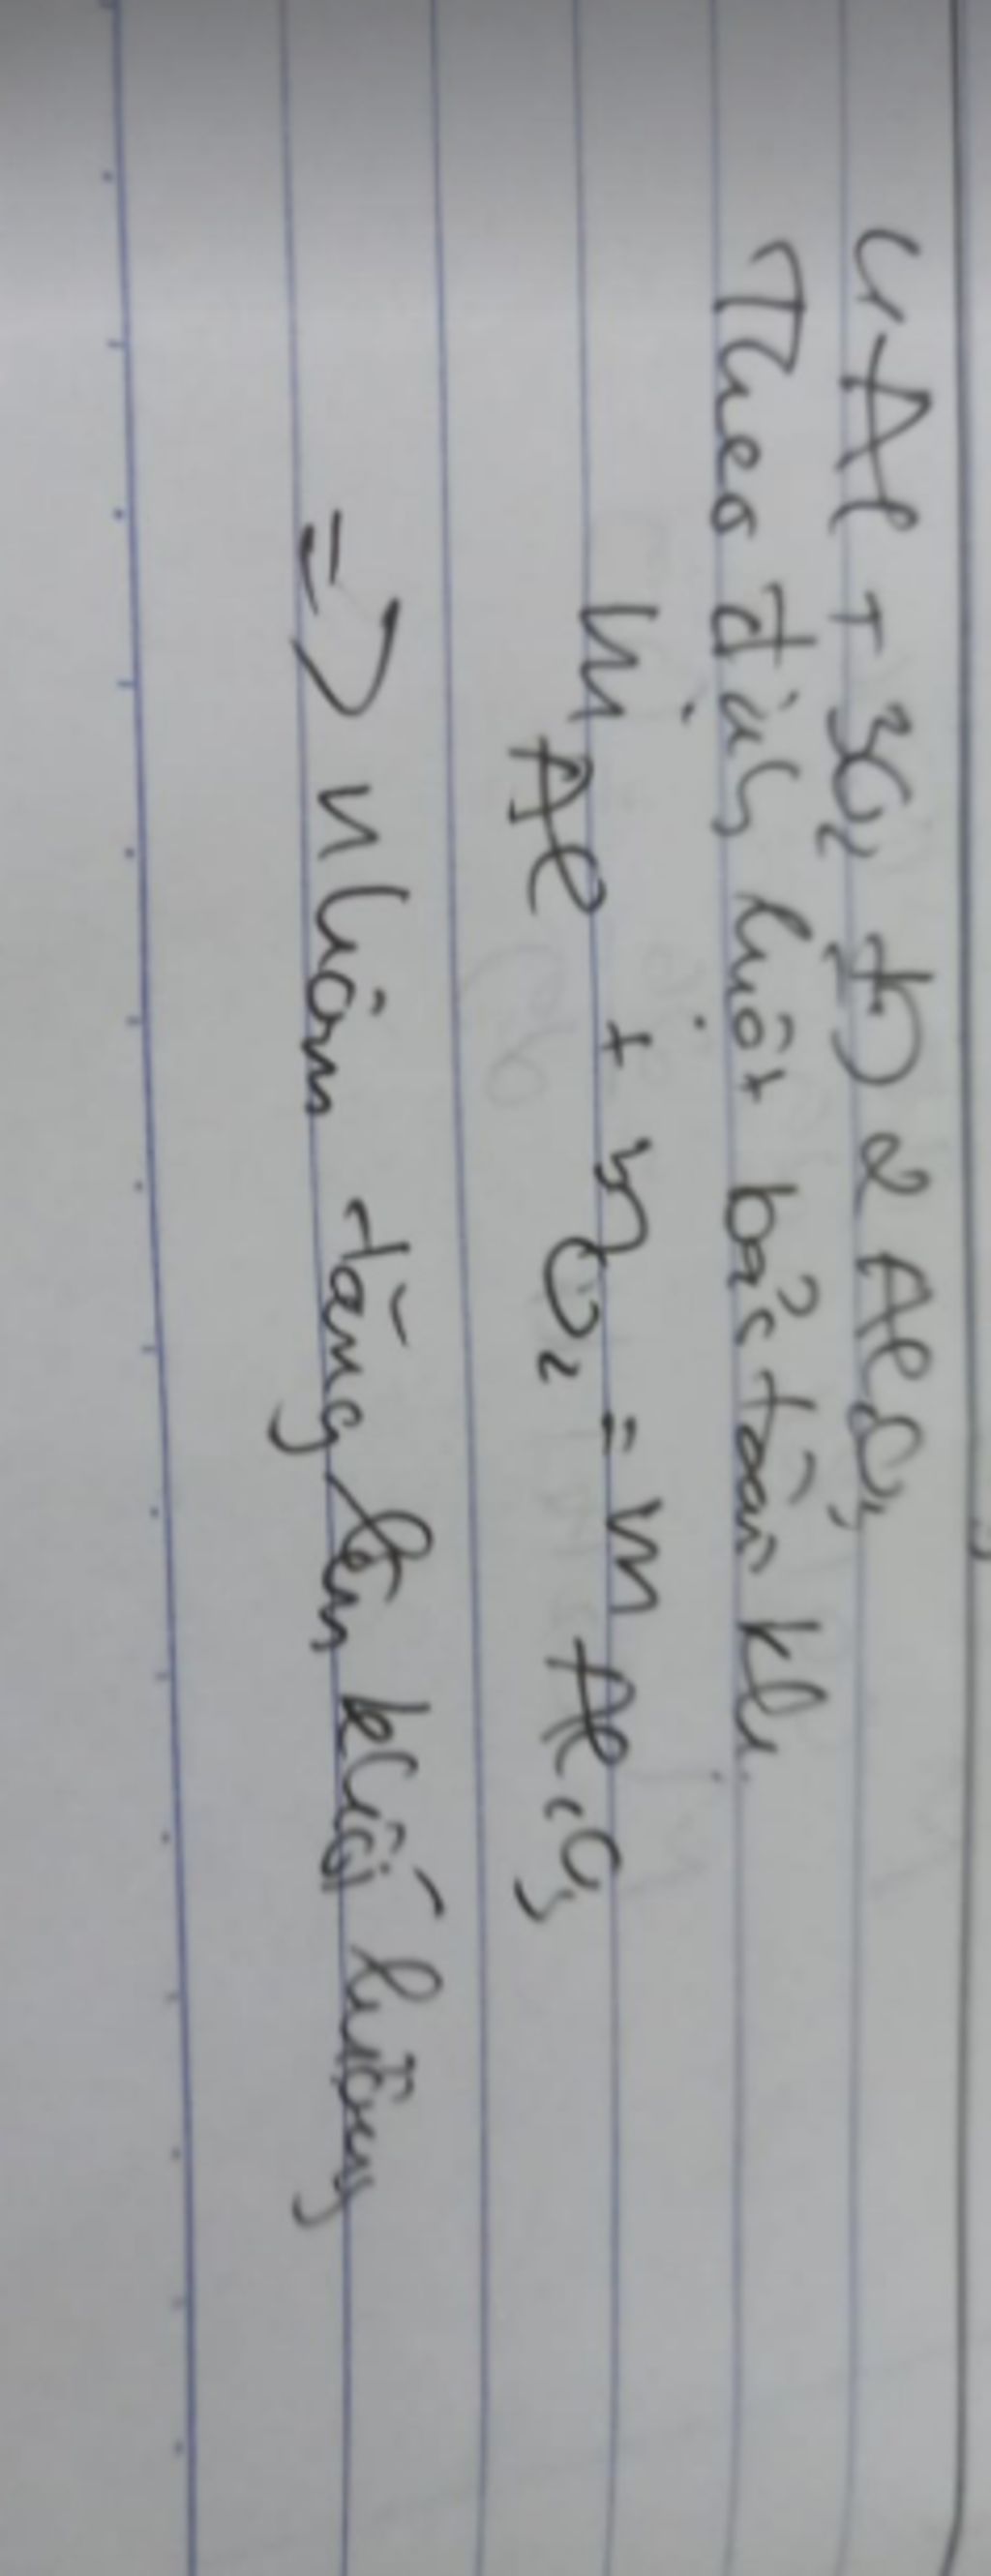 4Al + 3O₂ t° → 2Al₂O₃
Theo định luật bảo toàn kl
m Al + m O₂ = m Al₂O₃
=> nhôm tăng lên khối lượng